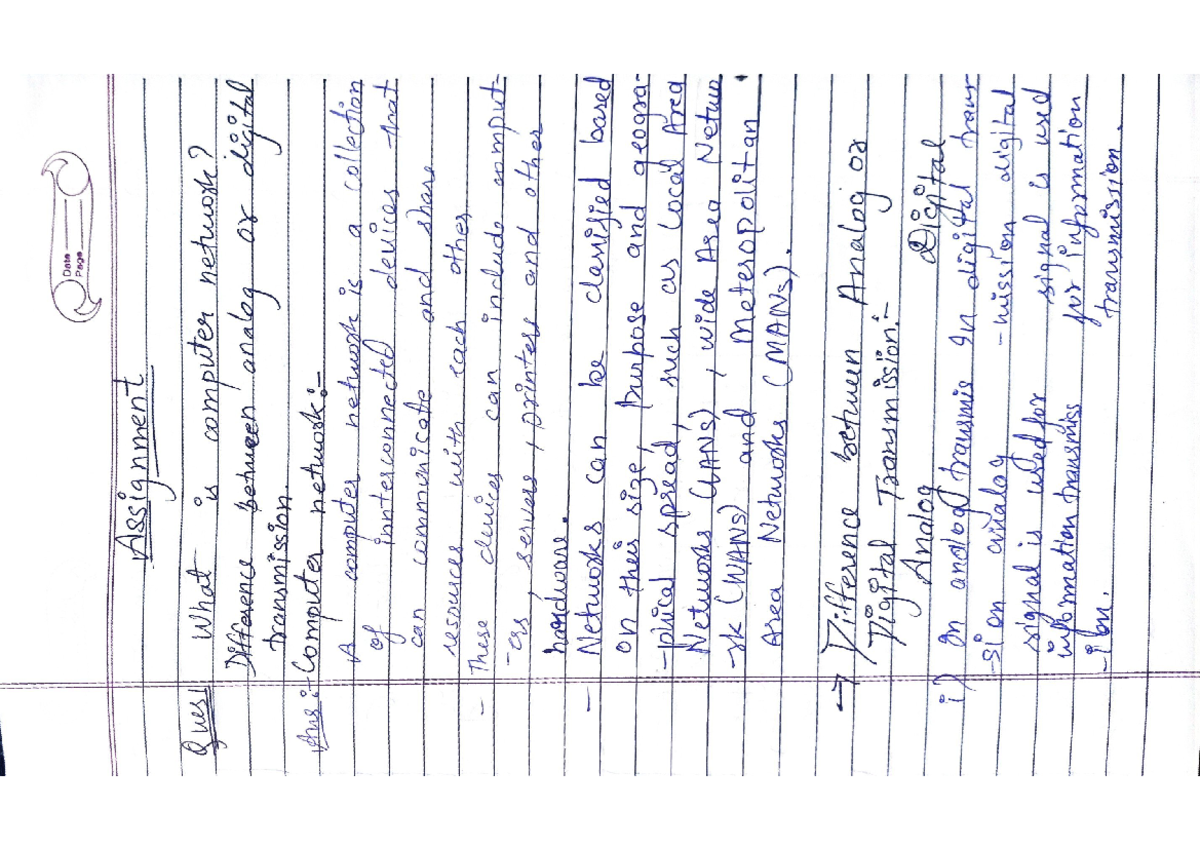 Date
Page
Assignment
Ques1 What is computer network?
Difference between analog or digital
transmission.
Ans:- Computer network:-
A computer network is a collection
of interconnected devices that
can communicate and share
resources with each other
- These devices can include comput-
-ers, servers, printers and other
hardware.
- Networks can be classified based
on their size, purpose and geogra-
-phical spread, such as Local Area
Networks (LANs), wide Area Netwo
-rk (WANs) and Meteropolitan
Area Networks (MANs).
→ Difference between Analog or
Digital Transmission:-
Analog Digital
i) In analog transmis In digital trans
-sion analog -mission digital
signal is used for signal is used
information transmiss for information
-ion. transmission.